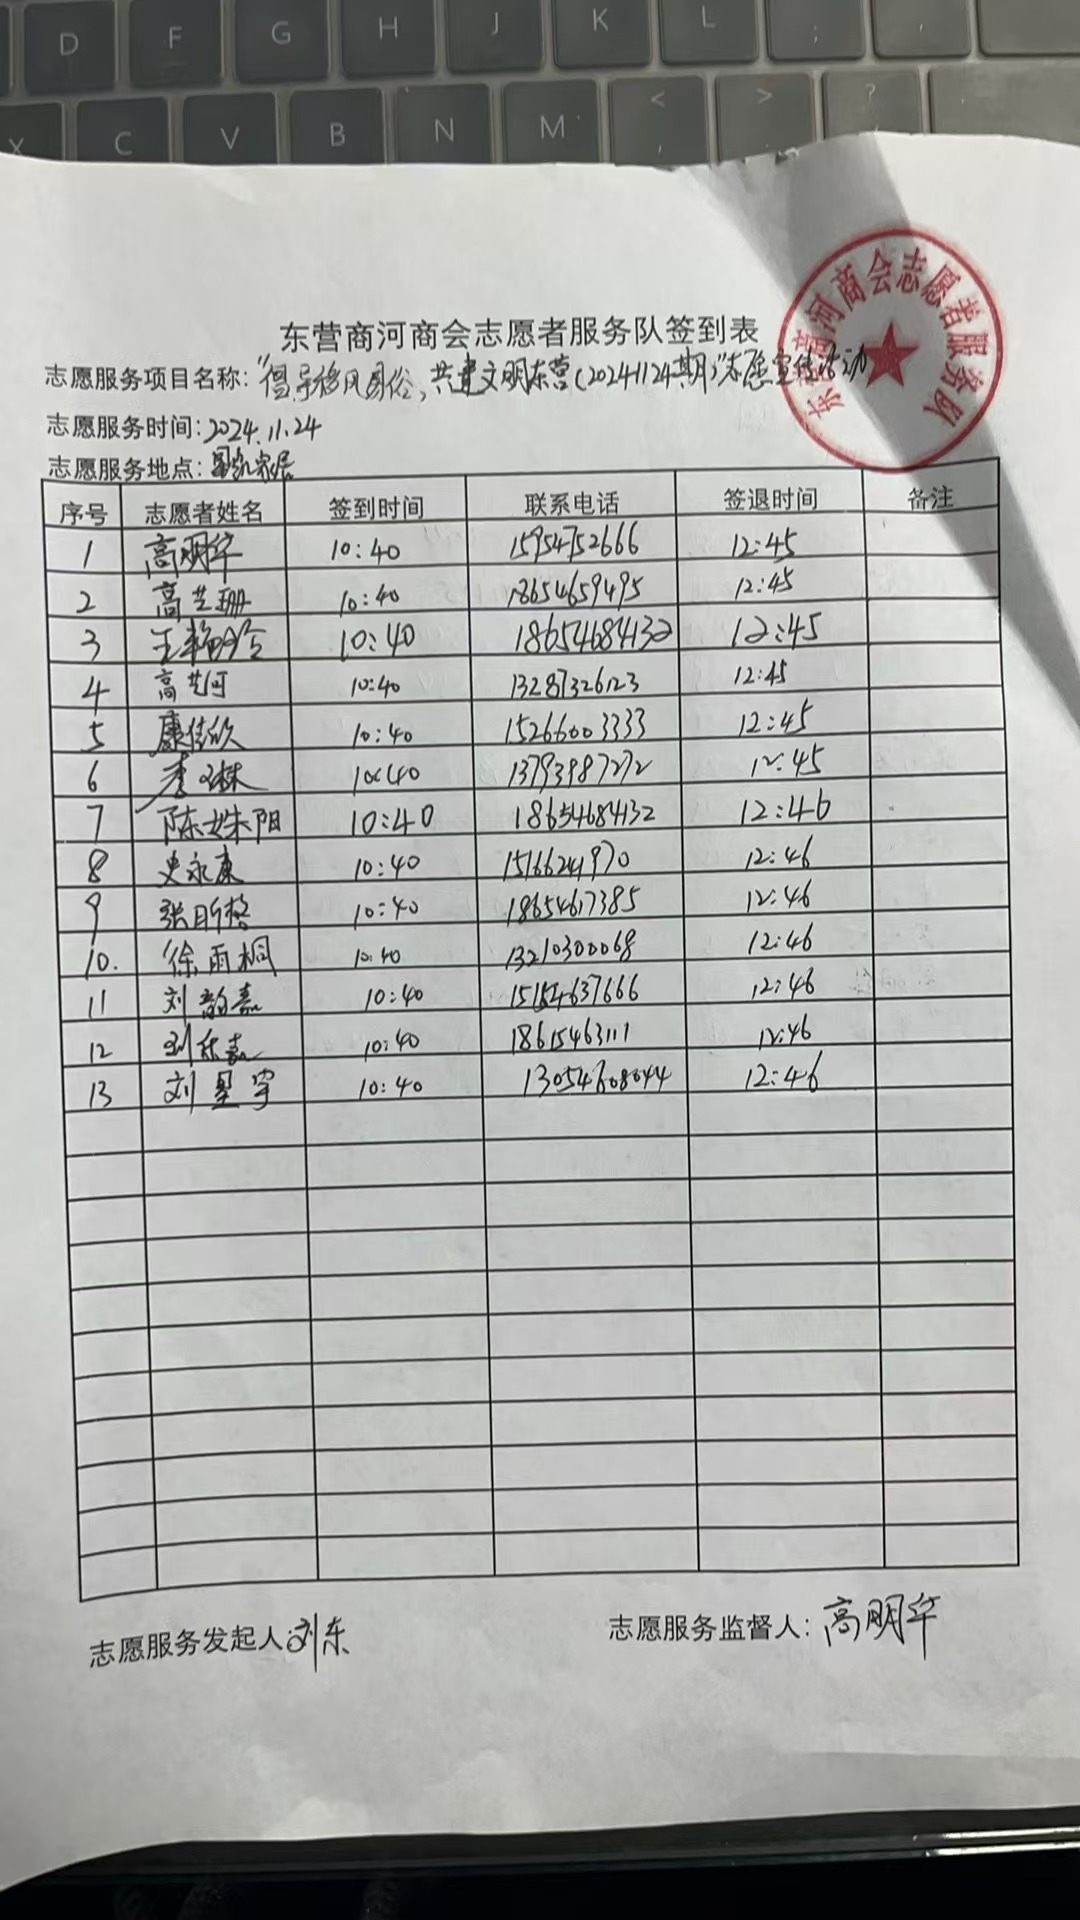 D F G H J K L ;
X C V B N M < > ?
东营商河商会志愿者服务队
东营商河商会志愿者服务队签到表
志愿服务项目名称:“倡导移风易俗,共建文明东营(20241124期)”志愿宣传活动
志愿服务时间:2024.11.24
志愿服务地点:家居
序号 志愿者姓名 签到时间 联系电话 签退时间 备注
1 高明华 10:40 15954752666 12:45
2 高艺珊 10:40 18654659495 12:45
3 王艳玲 10:40 18654684132 12:45
4 高艺珂 10:40 13287326123 12:45
5 康佳欣 10:40 15266003333 12:45
6 李琳 10:40 13793987272 12:45
7 陈姝阳 10:40 18654684132 12:46
8 史永康 10:40 15166241970 12:46
9 张昕格 10:40 18654617385 12:46
10. 徐雨桐 10:40 13210300068 12:46
11 刘韵嘉 10:40 15154637666 12:46
12 刘乐嘉 10:40 18615463111 12:46
13 刘星宇 10:40 13054608044 12:46
志愿服务发起人:刘东 志愿服务监督人:高明华